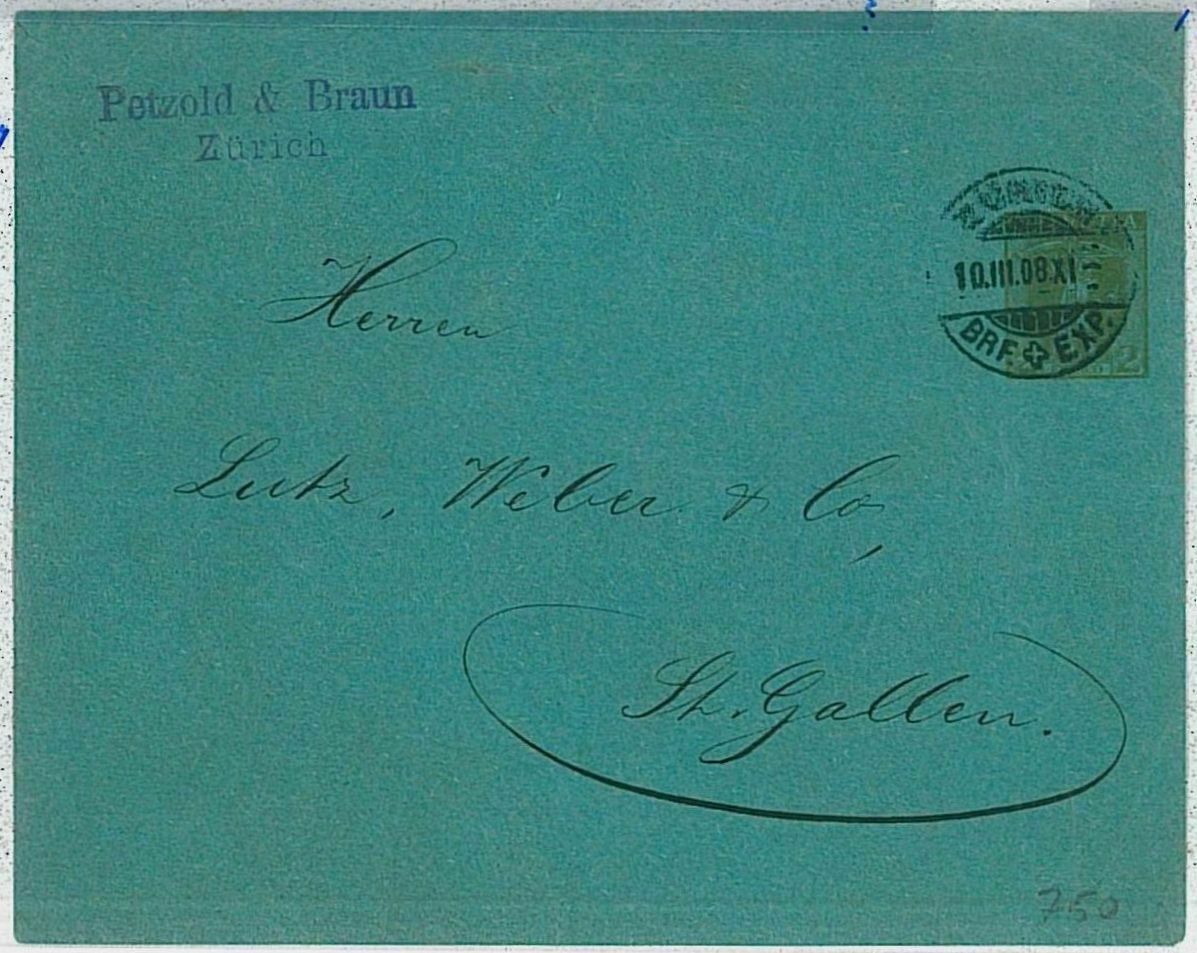 Petzold & Braun
Zürich
ZÜRICH
10.III.08.XI
BRF. EXP.
2
Herren
Lutz, Weber & Co,
St. Gallen.
750